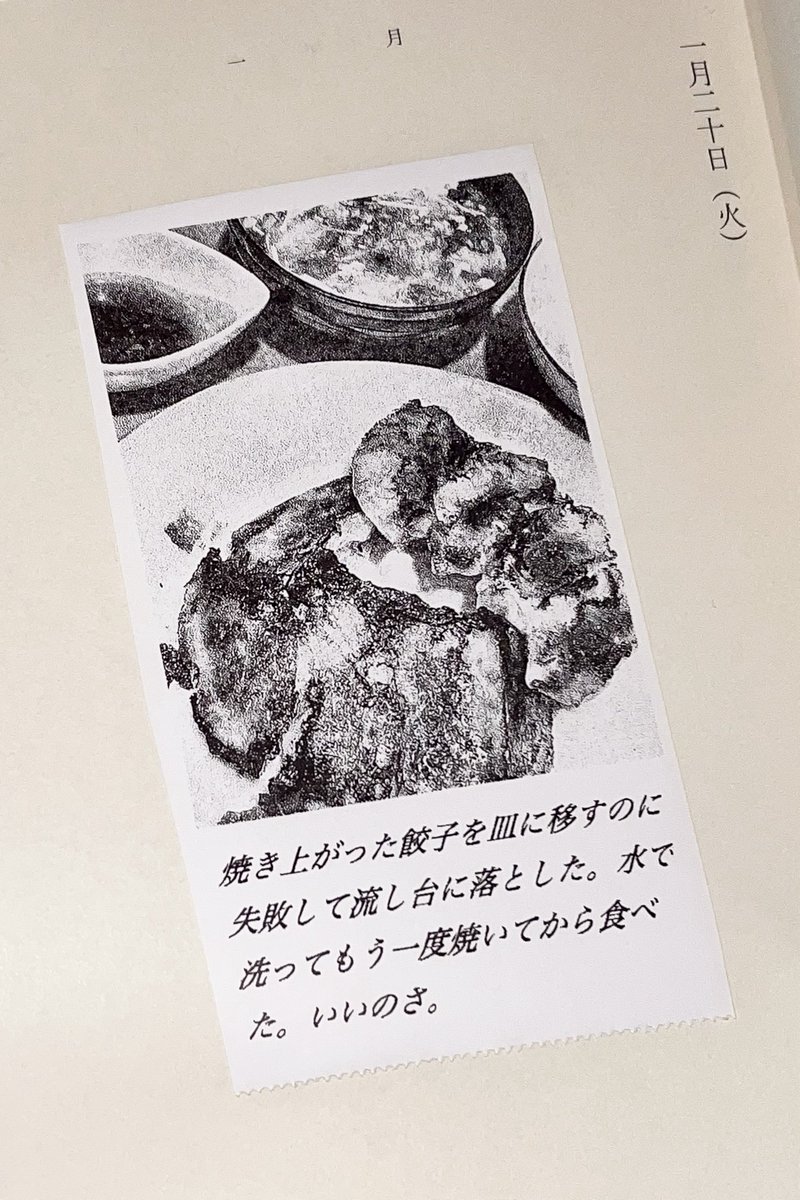 一月
一月二十日(火)
焼き上がった餃子を皿に移すのに
失敗して流し台に落とした。水で
洗ってもう一度焼いてから食べ
た。いいのさ。